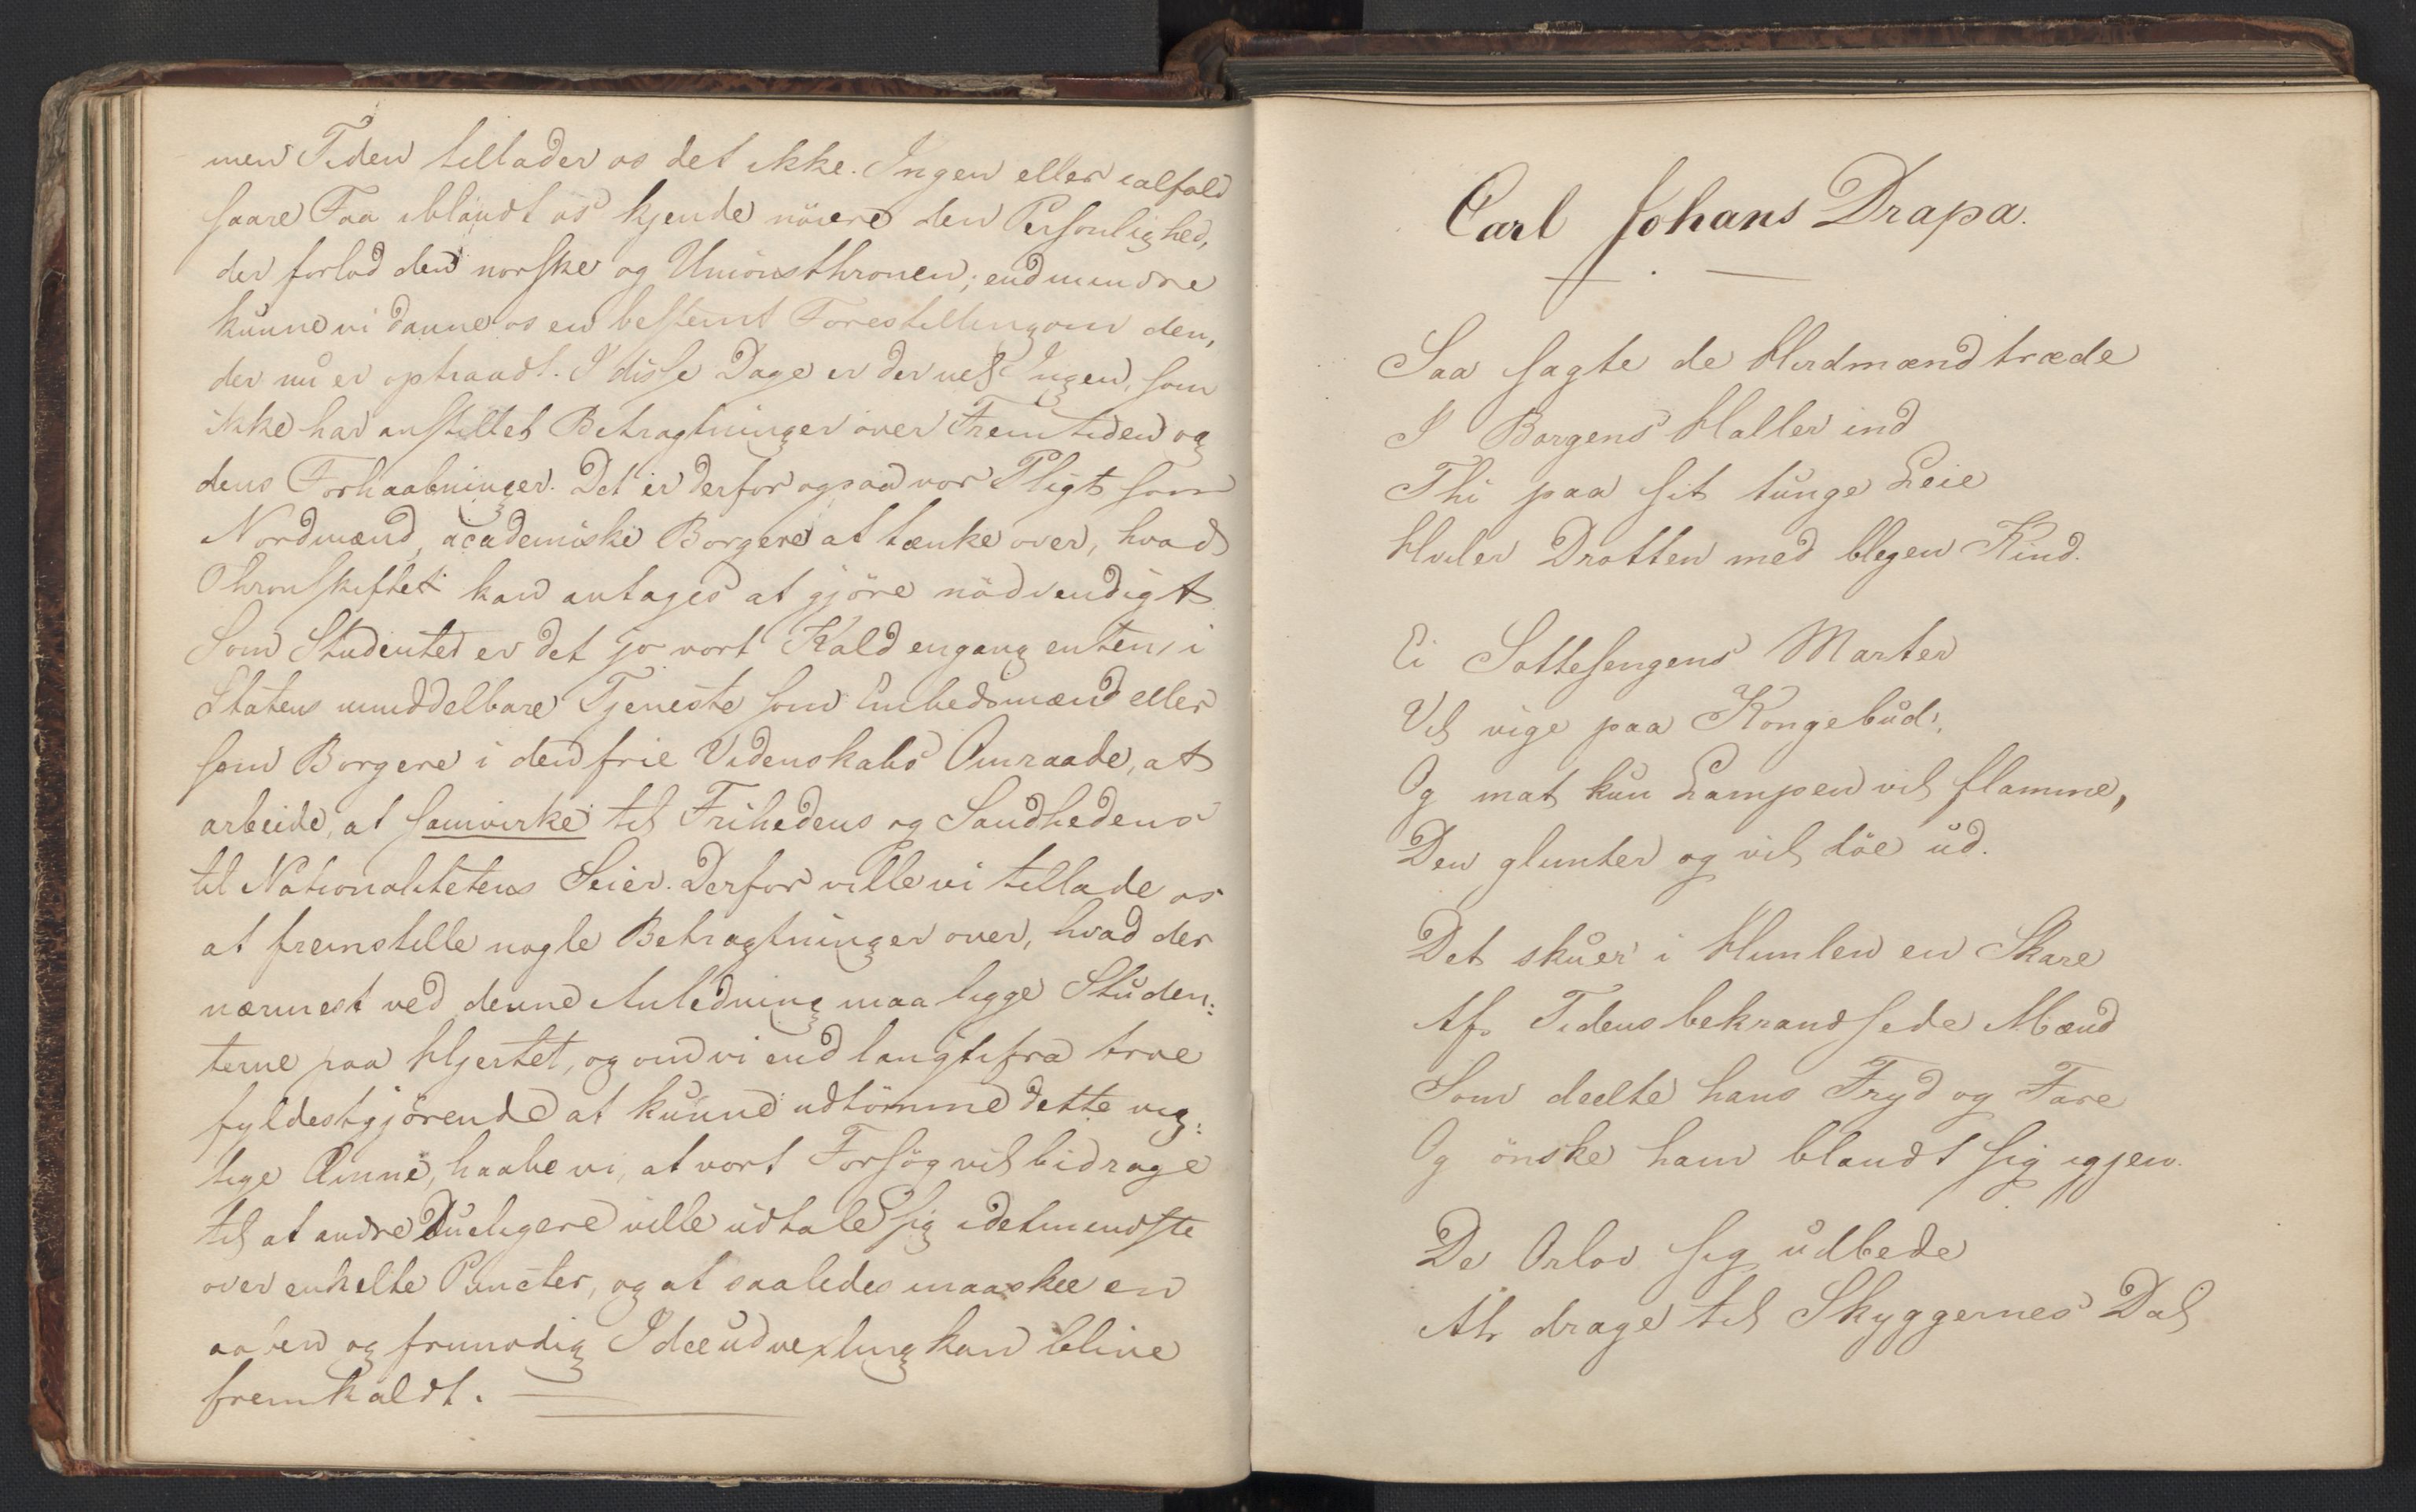 men Tiden tillader os det ikke. Ingen eller ialfald
saare Faa iblandt os kjende nöiere den Personlighed,
der forlod den norske og Unionsthronen; endmindre
kunne vi danne os en bestemt Forestilling om den,
der nu er optraadt. I disse Dage er der vel Ingen, som
ikke har anstillet Betragtninger over Fremtiden og
dens Forhaabninger. Det er derfor ogsaa vor Pligt som
Nordmænd, academiske Borgere at tænke over, hvad
Thronskiftet kan antages at gjöre nödvendigt.
Som Studenter er det jo vort Kald engang enten, i
Statens umiddelbare Tjeneste som Embedsmænd eller
som Borgere i den frie Videnskabs Omraade, at
arbeide, at samvirke til Frihedens og Sandhedens
til Nationalitetens Seier. Derfor ville vi tillade os
at fremstille nogle Betragtninger over, hvad der
nærmest ved denne Anledning maa ligge Studen:
terne paa Hjertet, og om vi end langtifra troe
fyldestgjörende at kunne udtömme dette vig:
tige Æmne, haabe vi, at vort Forsög vil bidrage
til at andre Dueligere ville udtale sig idetmindste
over enkelte Puncter, og at saaledes maaskee en
aaben og frimodig Ideeudvexling kan blive
fremkaldt.
Carl Johans Drapa.
Saa sagte de Hirdmænd træde
I Borgens Haller ind
Thi paa sit tunge Leie
Hviler Drotten med blegen Kind.
Ei Sottesengens Marter
Vil vige paa Kongebud;
Og mat kun Lampen vil flamme,
Den glimter og vil döe ud.
Det skuer i Himlen en Skare
Af Tidens bekrandsede Mænd
Som deelte hans Fryd og Fare
Og önske ham blandt sig igjen.
De Orlov sig udbede
At drage til Skyggernes Dal